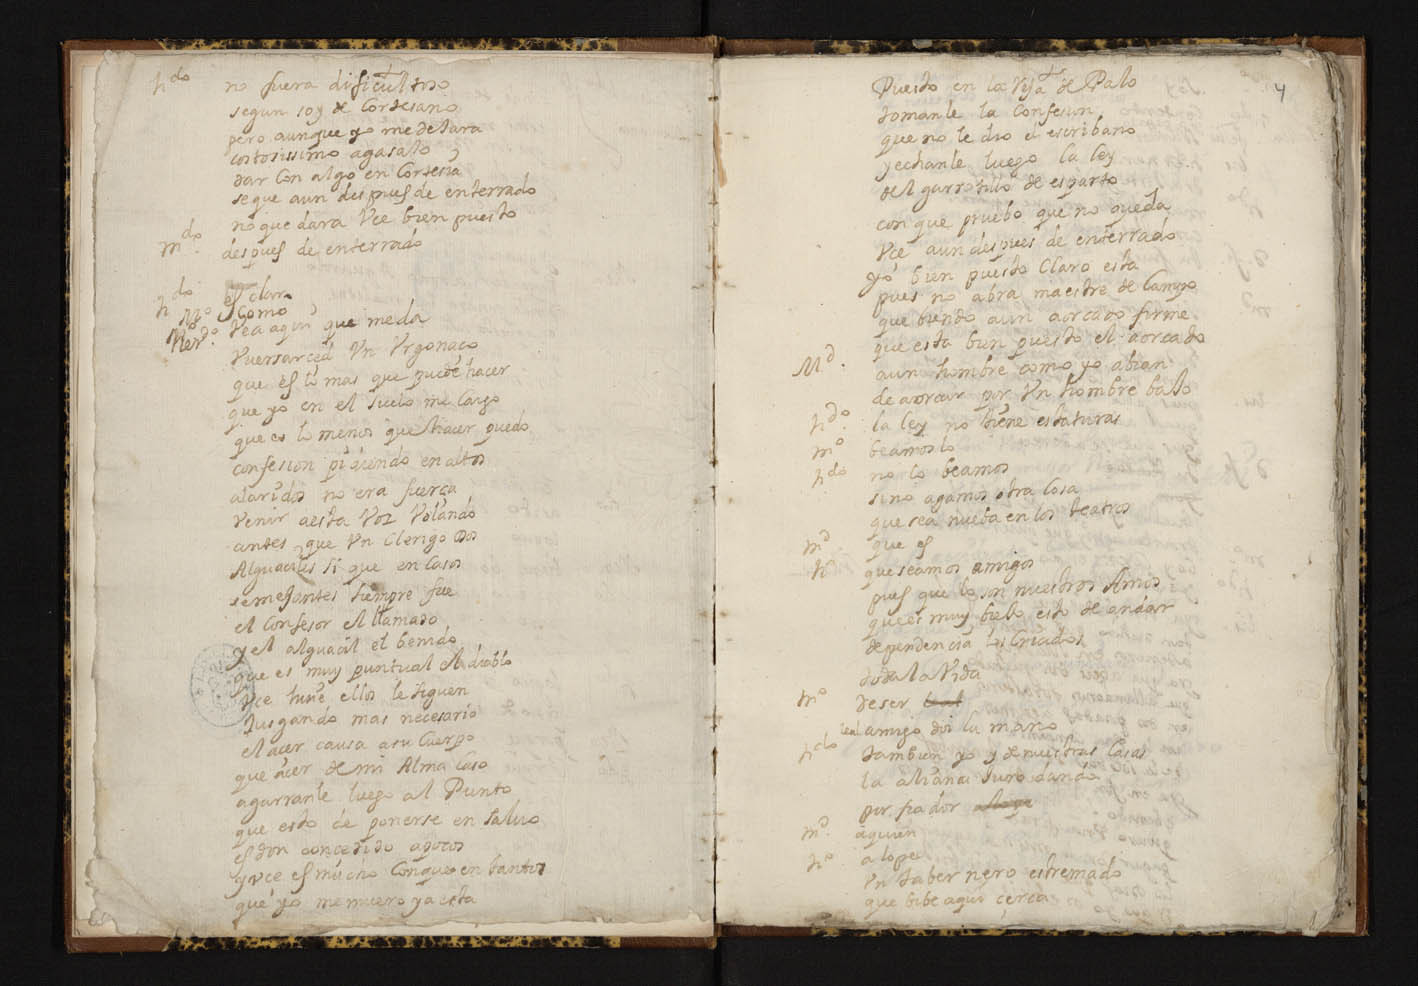 hdo no fuera dificultoso
segun soy de Cortesano
pero aunque yo me dejara
cortosissimo agasajo
dar Con algo en Cortesia
se que aun despues de enterrado
no que dara Vce bien puesto
mdo. despues de enterrado
hdo es claro
Mo. Como
Herdo. Vea aqui que me da
Vuersarced Vn Vrgonaço
que es lo mas que puede hacer
que yo en el suelo me Caygo
que es lo menos que hacer puedo
confesion pidiendo en altos
alaridos no era fuerça
Venir a esta Voz Volando
antes que Vn Clerigo dos
Alguaciles si que en Casos
semejantes siempre fue
el Confesor el llamado
y el alguacil el benido
que es muy puntual el diablo
Vce huie ellos le siguen
Jusgando mas necesario
el acer causa a su Cuerpo
que acer de mi Alma Caso
agarranle luego al Punto
que esto de ponerse en salvo
es don concedido a pocos
y vce es mucho Conque en tanto
que yo me muero ya esta
4
Puesto en la Viga de Palo
tomanle la Confesion
que no le dio el escribano
y echanle luego la ley
del garrotillo de esparto
con que pruebo que no queda
Vce aun despues de enterrado
yo bien puesto Claro esta
pues no abra maestre de Campo
que biendo aun aorcado firme
que esta bien puesto el aorcado
Md. a un hombre como yo abian
de aorcar por Vn hombre bajo
hdo. la ley no tiene estaturas
mo beamoslo
hdo no lo beamos
sino agamos otra Cosa
que sea nueba en los teatros
md que es
ho que seamos amigos
pues que lo son nuestros Amos
que es muy biejo esto de andar
dependencia los Criados
toda la Vida
mo de ser
leal amigo doi la mano
hdo tambien yo y de nuestras Casas
la aliança Juro dando
por fiador
mo. a quien
ho a lope
Vn tabernero estremado
que bibe aqui cerca